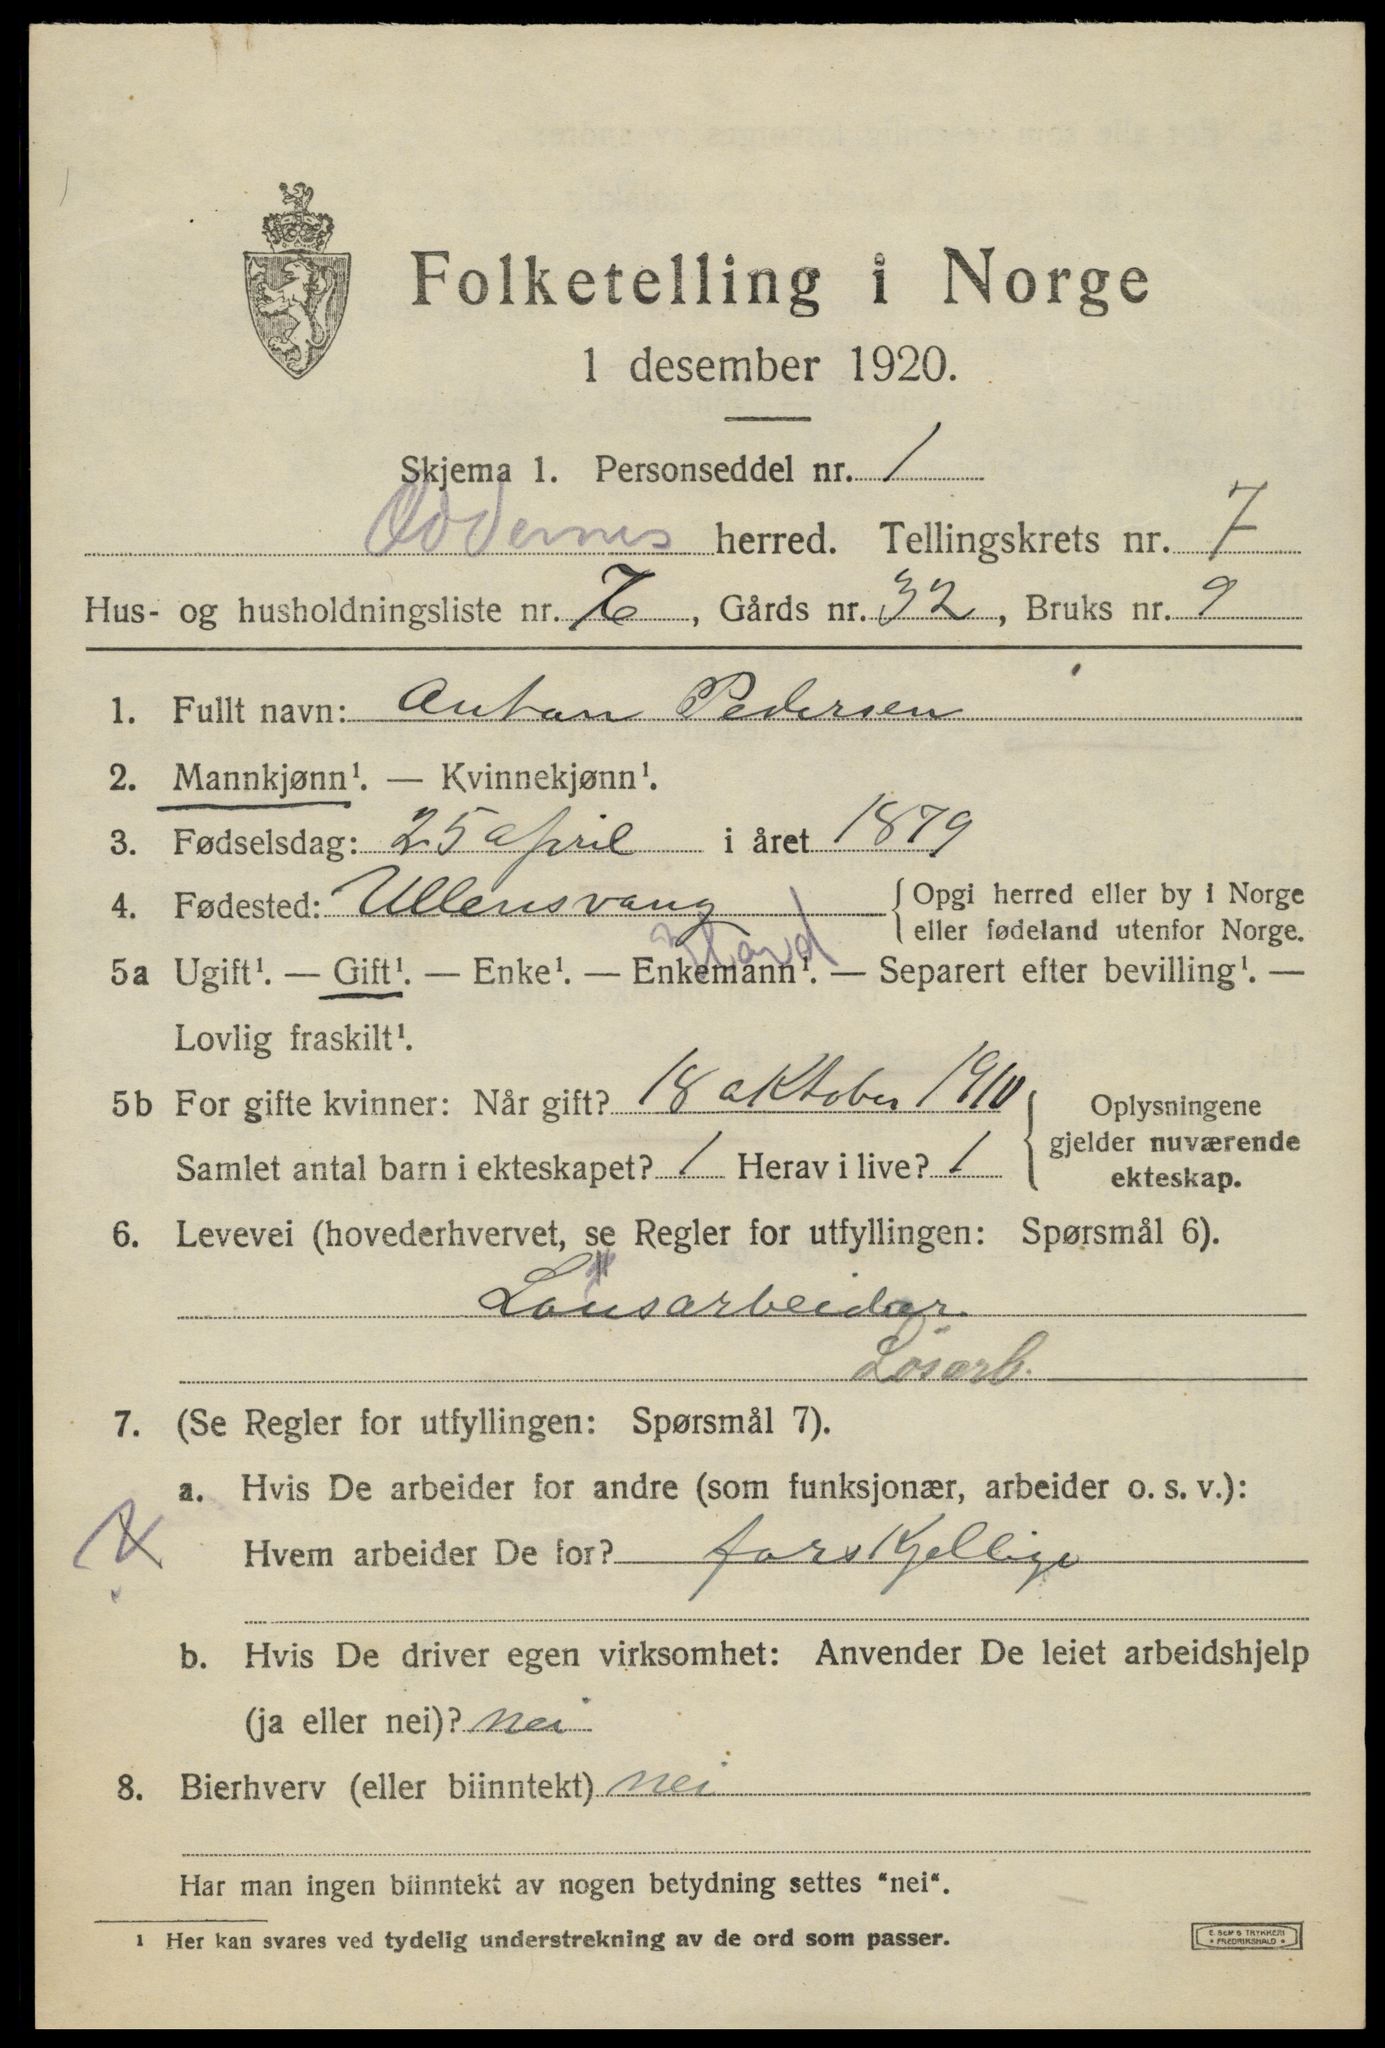 Folketelling i Norge
1 desember 1920.
Skjema 1. Personseddel nr. 1
Oddernes herred. Tellingskrets nr. 7
Hus- og husholdningsliste nr. 7, Gårds nr. 32, Bruks nr. 9
1. Fullt navn: Anton Pedersen
2. Mannkjønn¹. — Kvinnekjønn¹.
3. Fødselsdag: 25 april i året 1879
4. Fødested: Ullensvang { Opgi herred eller by i Norge
eller fødeland utenfor Norge.
5a Ugift¹. — Gift¹. — Enke¹. — Enkemann¹. — Separert efter bevilling¹. —
Lovlig fraskilt¹.
5b For gifte kvinner: Når gift? 18 oktober 1910 { Oplysningene
gjelder nuværende
Samlet antal barn i ekteskapet? 1 Herav i live? 1 ekteskap.
6. Levevei (hovederhvervet, se Regler for utfyllingen: Spørsmål 6).
Lausarbeidar
Løsarb.
7. (Se Regler for utfyllingen: Spørsmål 7).
a. Hvis De arbeider for andre (som funksjonær, arbeider o. s. v.):
Hvem arbeider De for? forskjellige
b. Hvis De driver egen virksomhet: Anvender De leiet arbeidshjelp
(ja eller nei)? nei
8. Bierhverv (eller biinntekt) nei
Har man ingen biinntekt av nogen betydning settes "nei".
¹ Her kan svares ved tydelig understrekning av de ord som passer.
E. SEM'S TRYKKERI
* FREDRIKSHALD *